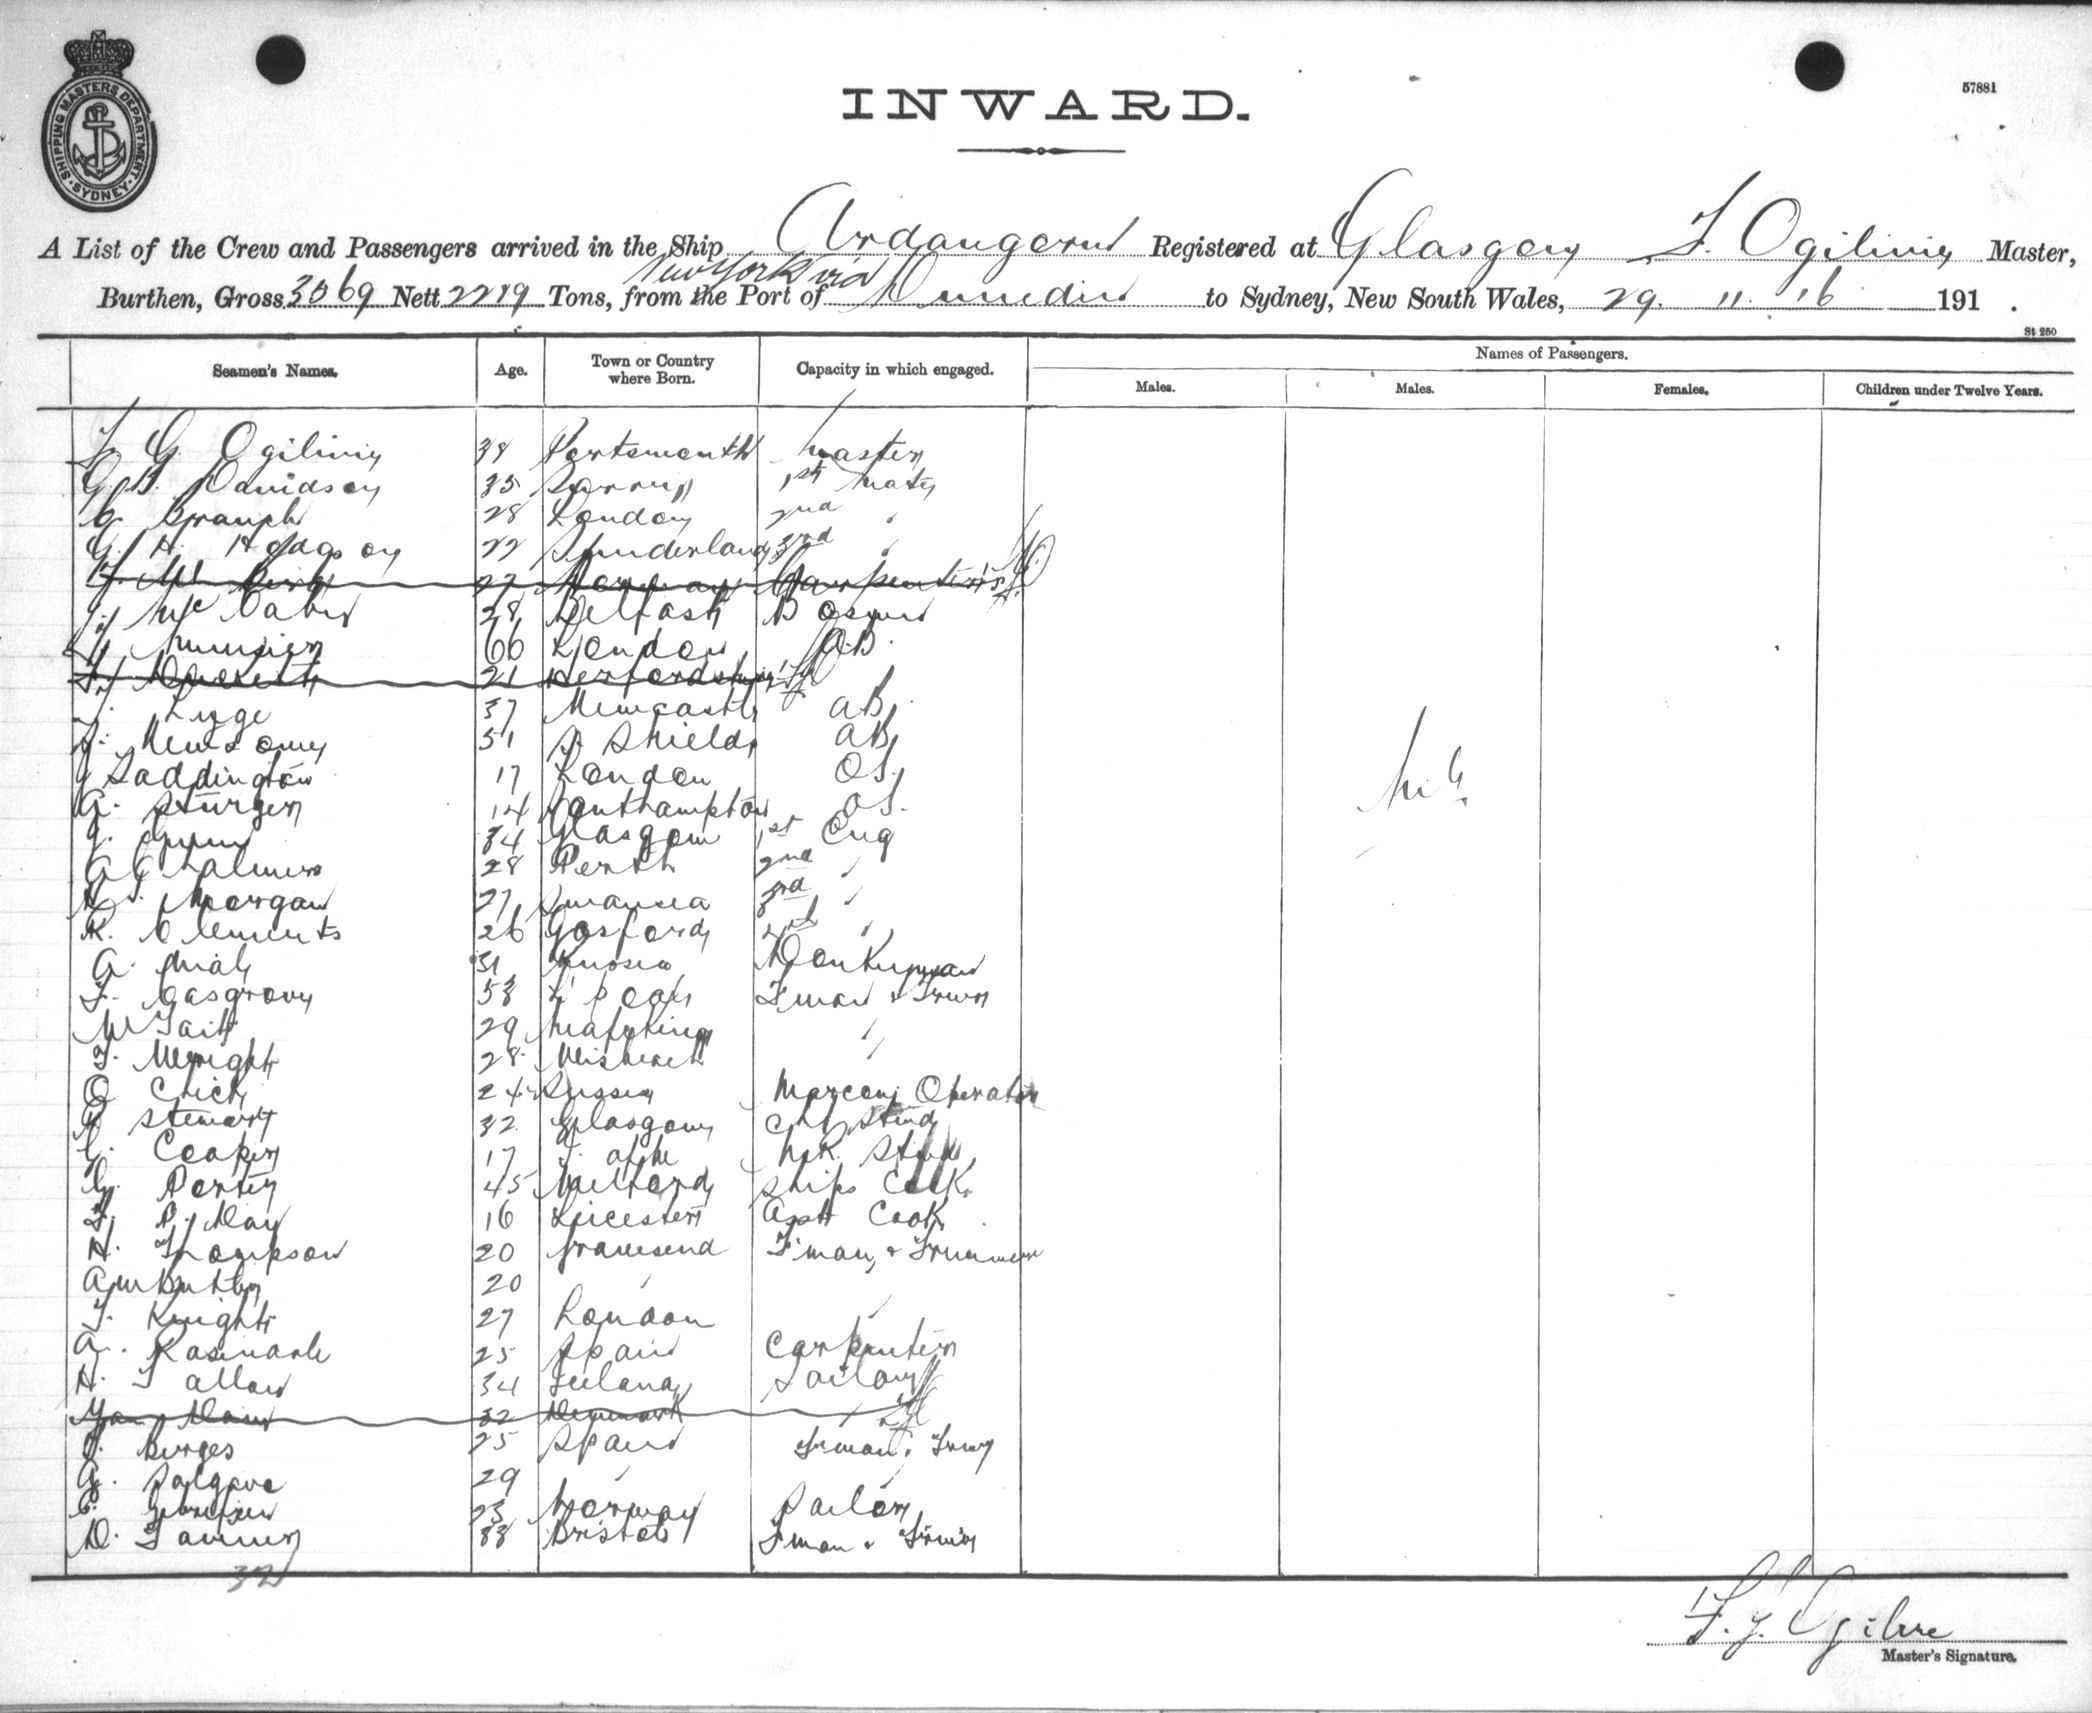 SHIPPING MASTERS DEPARTMENT
SYDNEY
INWARD.
57881
A List of the Crew and Passengers arrived in the Ship Ardangorm Registered at Glasgow F. Ogilivie Master,
New York via
Burthen, Gross 3069 Nett 2219 Tons, from the Port of Dunedin to Sydney, New South Wales, 29. 11. 16 191 .
St 250
Seamen's Names. Age. Town or Country where Born. Capacity in which engaged. Names of Passengers.
Males. Males. Females. Children under Twelve Years.
F. G. Ogilivie 38 Portsmouth Master
G. B. Davidson 35 1st Mate
Branch 28 London 2nd "
G. H. Hodgson 22 Sunderland 3rd "
27 Norway Carpenter
J. McCabe 28 Belfast Bosun
66 London AB.
21 Herfordshire
37 Newcastle AB.
J. Newsome 51 S. Shields AB
J Saddington 17 London OS.
A. Sturgess 14 Southampton OS.
34 Glasgow 1st Eng
A Chalmers 28 Perth 2nd "
Morgan 27 Swansea 3rd "
R. Clements 26 Gosford 4th "
A. 31 Russia Donkeyman
F. Casgrove 58 L'pool F'man & Trimr
W Tait 29 Mafeking "
F. Wright 28 Wisbech "
24 Sussex Marconi Operator
Stewart 32 Glasgow Chf Stwd
G. Cooper 17 M.R. Stwd
G. Porter 45 Milford Ships Cook
F. P. Day 16 Leicester Asst Cook
H. Thompson 20 Gravesend F'man & Trimmer
A W Butler 20 "
T. Knight 27 London "
A. 25 Spain Carpenter
H. Tallan Ireland 34 Sailor
32 Denmark "
J. Burges 25 Spain F'man & Trimr
A. Salgave 29 " "
23 Norway Sailor
D. Tanner 38 Bristol F'man & Trimr
32
Nil
F. G. Ogilvie
Master's Signature.